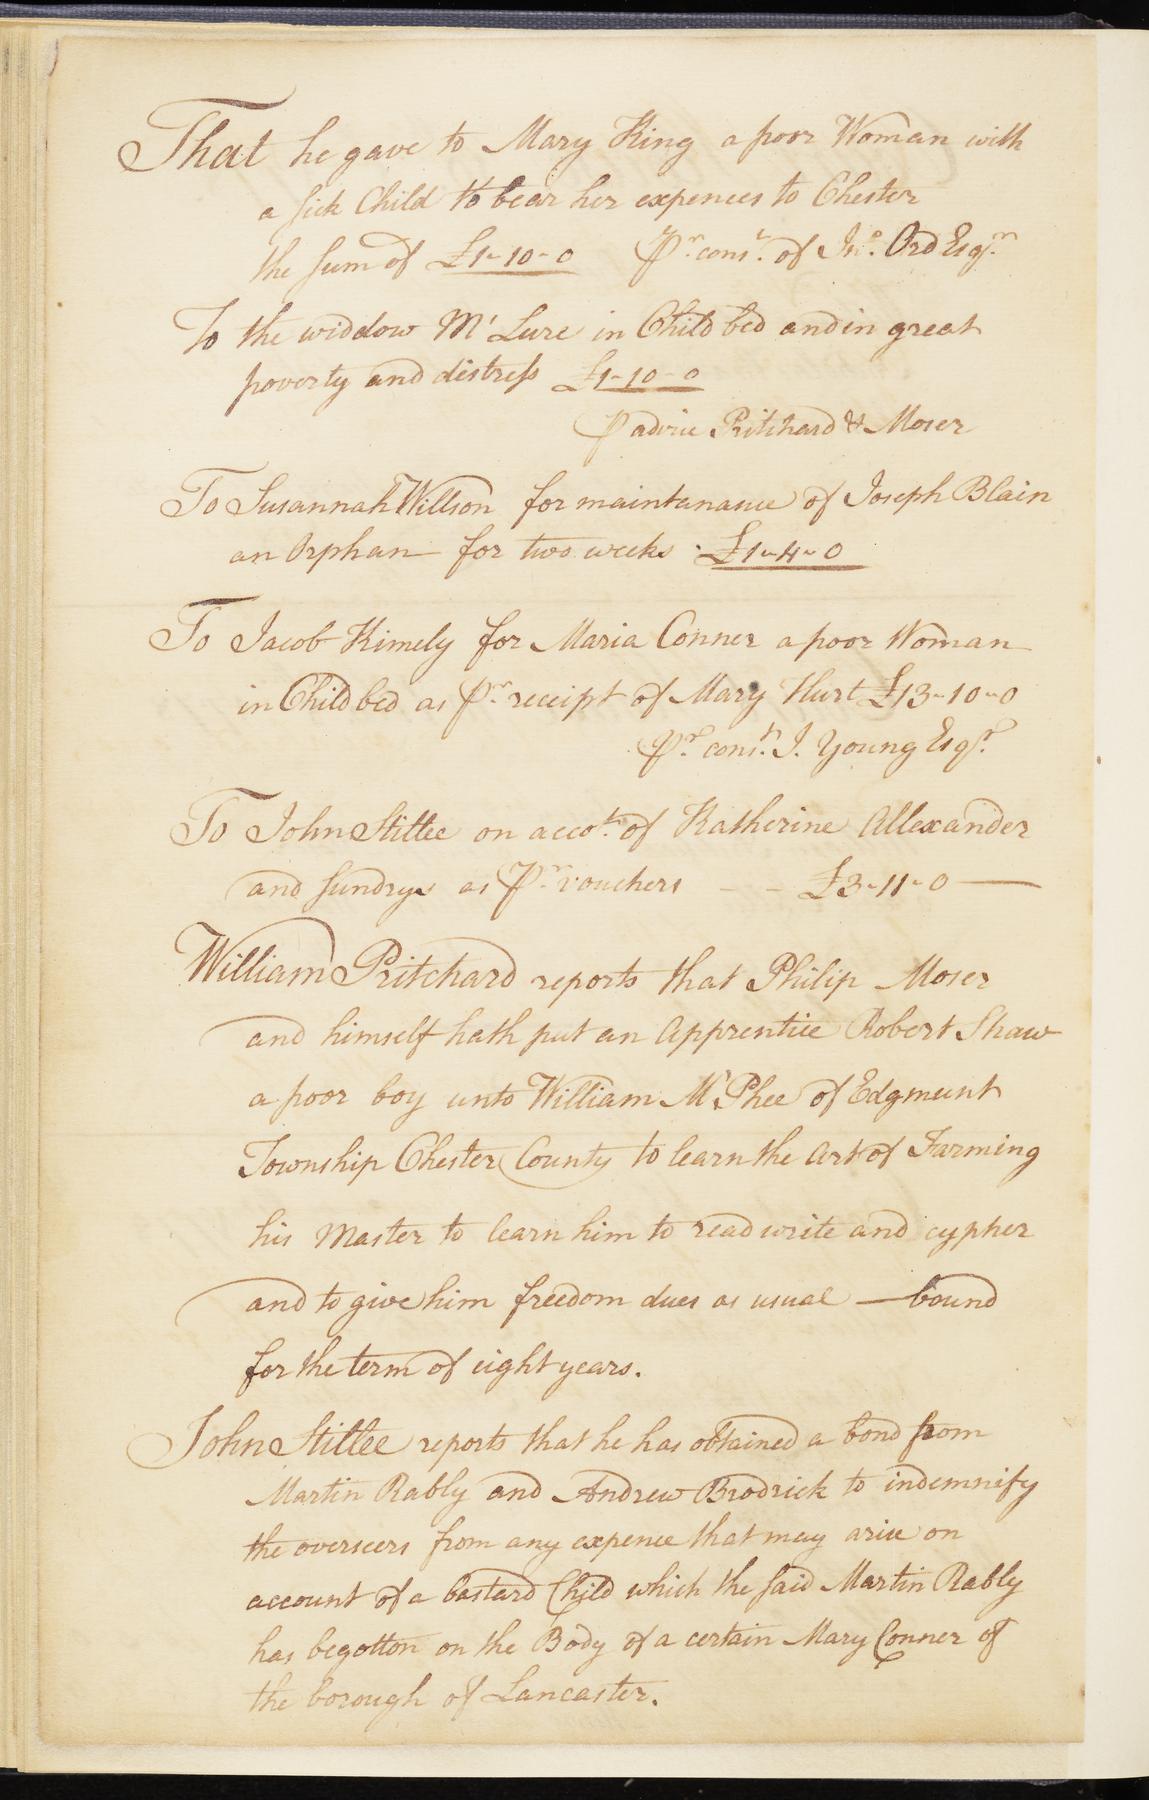 That he gave to Mary King a poor Woman with
a sick Child to bear her expences to Chester
the sum of £1-10-0 Pr. cons.t of Jno. Ord Esqr.
To the widdow Mc Lure in Child bed and in great
poverty and distress £1-10-0
P advice Pritchard & Moser
To Susannah Willson for maintanance of Joseph Blain
an Orphan for two weeks £1-4-0
To Jacob Kimely for Maria Conner a poor Woman
in Child bed as Pr. receipt of Mary Hurt £13-10-0
Pr. cons.t J. Young Esqr.
To John Stillee on accot. of Katherine Allexander
and sundrys as Pr. vouchers - - £3-11-0 —
William Pritchard reports that Philip Moser
and himself hath put an apprentice Robert Shaw
a poor boy unto William McPhee of Edgmunt
Township Chester County to learn the art of Farming
his Master to learn him to read write and cypher
and to give him freedom dues as usual — bound
for the term of eight years.
John Stillee reports that he has obtained a bond from
Martin Rably and Andrew Brodrick to indemnify
the overseers from any expence that may arise on
account of a bastard Child which the said Martin Rably
has begotton on the Body of a certain Mary Conner of
the borough of Lancaster.